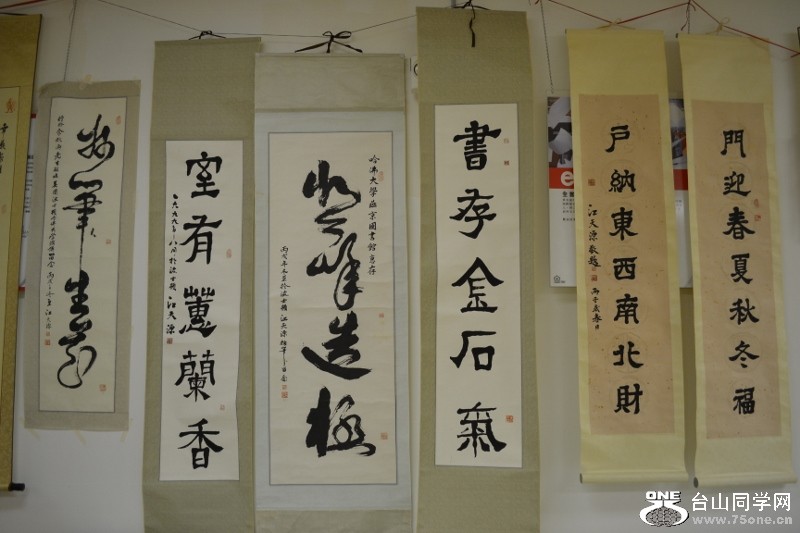 門迎春夏秋冬福
戶納東西南北財
江天源敬題
書存金石氣
哈佛大學燕京圖書館惠存
登峰造極
江天源
室有蕙蘭香
一九九九年八月於波士頓 江天源
妙筆生花
江天源
ONE 台山同学网
www.75one.cn